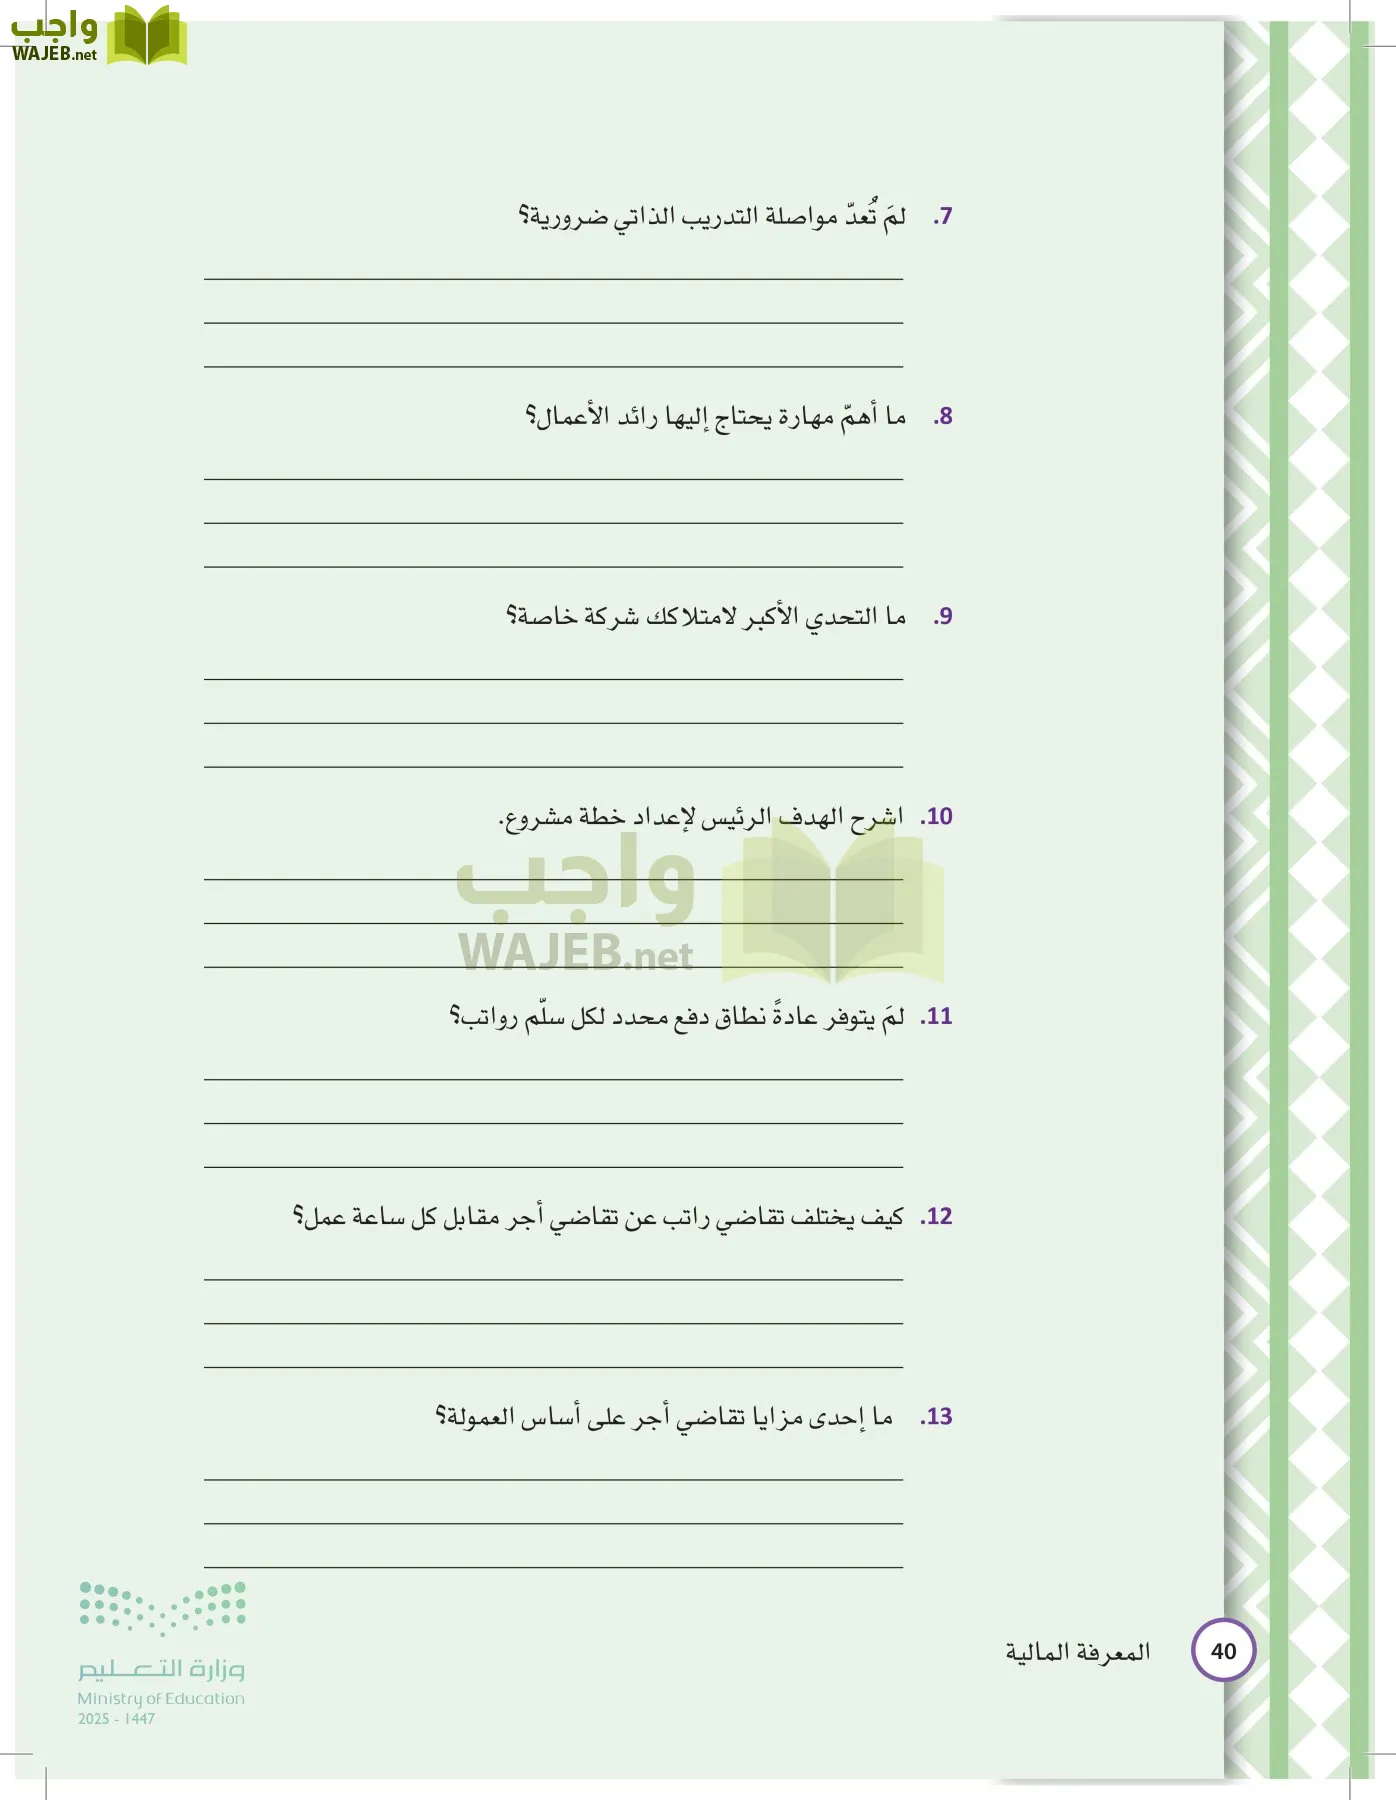 واجب
WAJEB.net
7. لمَ تُعدّ مواصلة التدريب الذاتي ضرورية؟
8. ما أهمّ مهارة يحتاج إليها رائد الأعمال؟
9. ما التحدي الأكبر لامتلاكك شركة خاصة؟
10. اشرح الهدف الرئيس لإعداد خطة مشروع.
واجب
WAJEB.net
11. لمَ يتوفر عادةً نطاق دفع محدد لكل سلّم رواتب؟
12. كيف يختلف تقاضي راتب عن تقاضي أجر مقابل كل ساعة عمل؟
13. ما إحدى مزايا تقاضي أجر على أساس العمولة؟
40 المعرفة المالية
وزارة التعليم
Ministry of Education
2025 - 1447